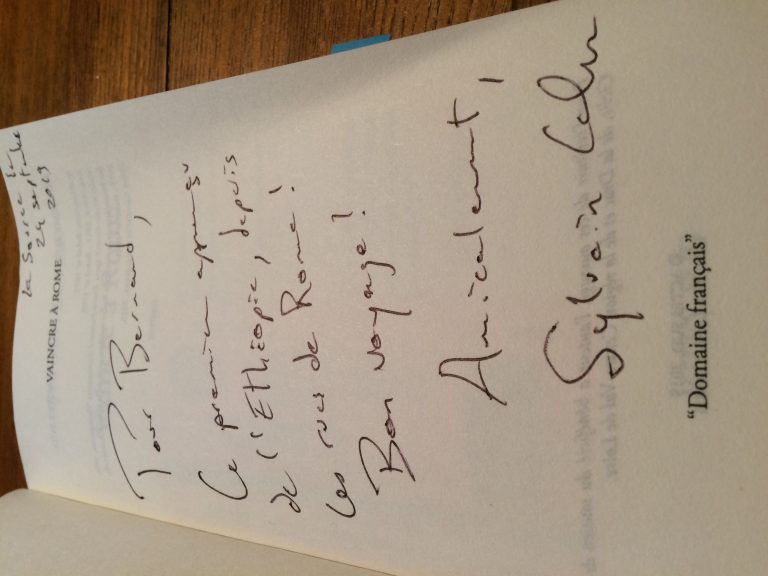 La Source le
24 septembre
2019
VAINCRE À ROME
Pour Bernard,
Ce premier aperçu
de l'Ethiopie, depuis
les rues de Rome!
Bon voyage!
Amicalement,
Sylvain Coher
“Domaine français”